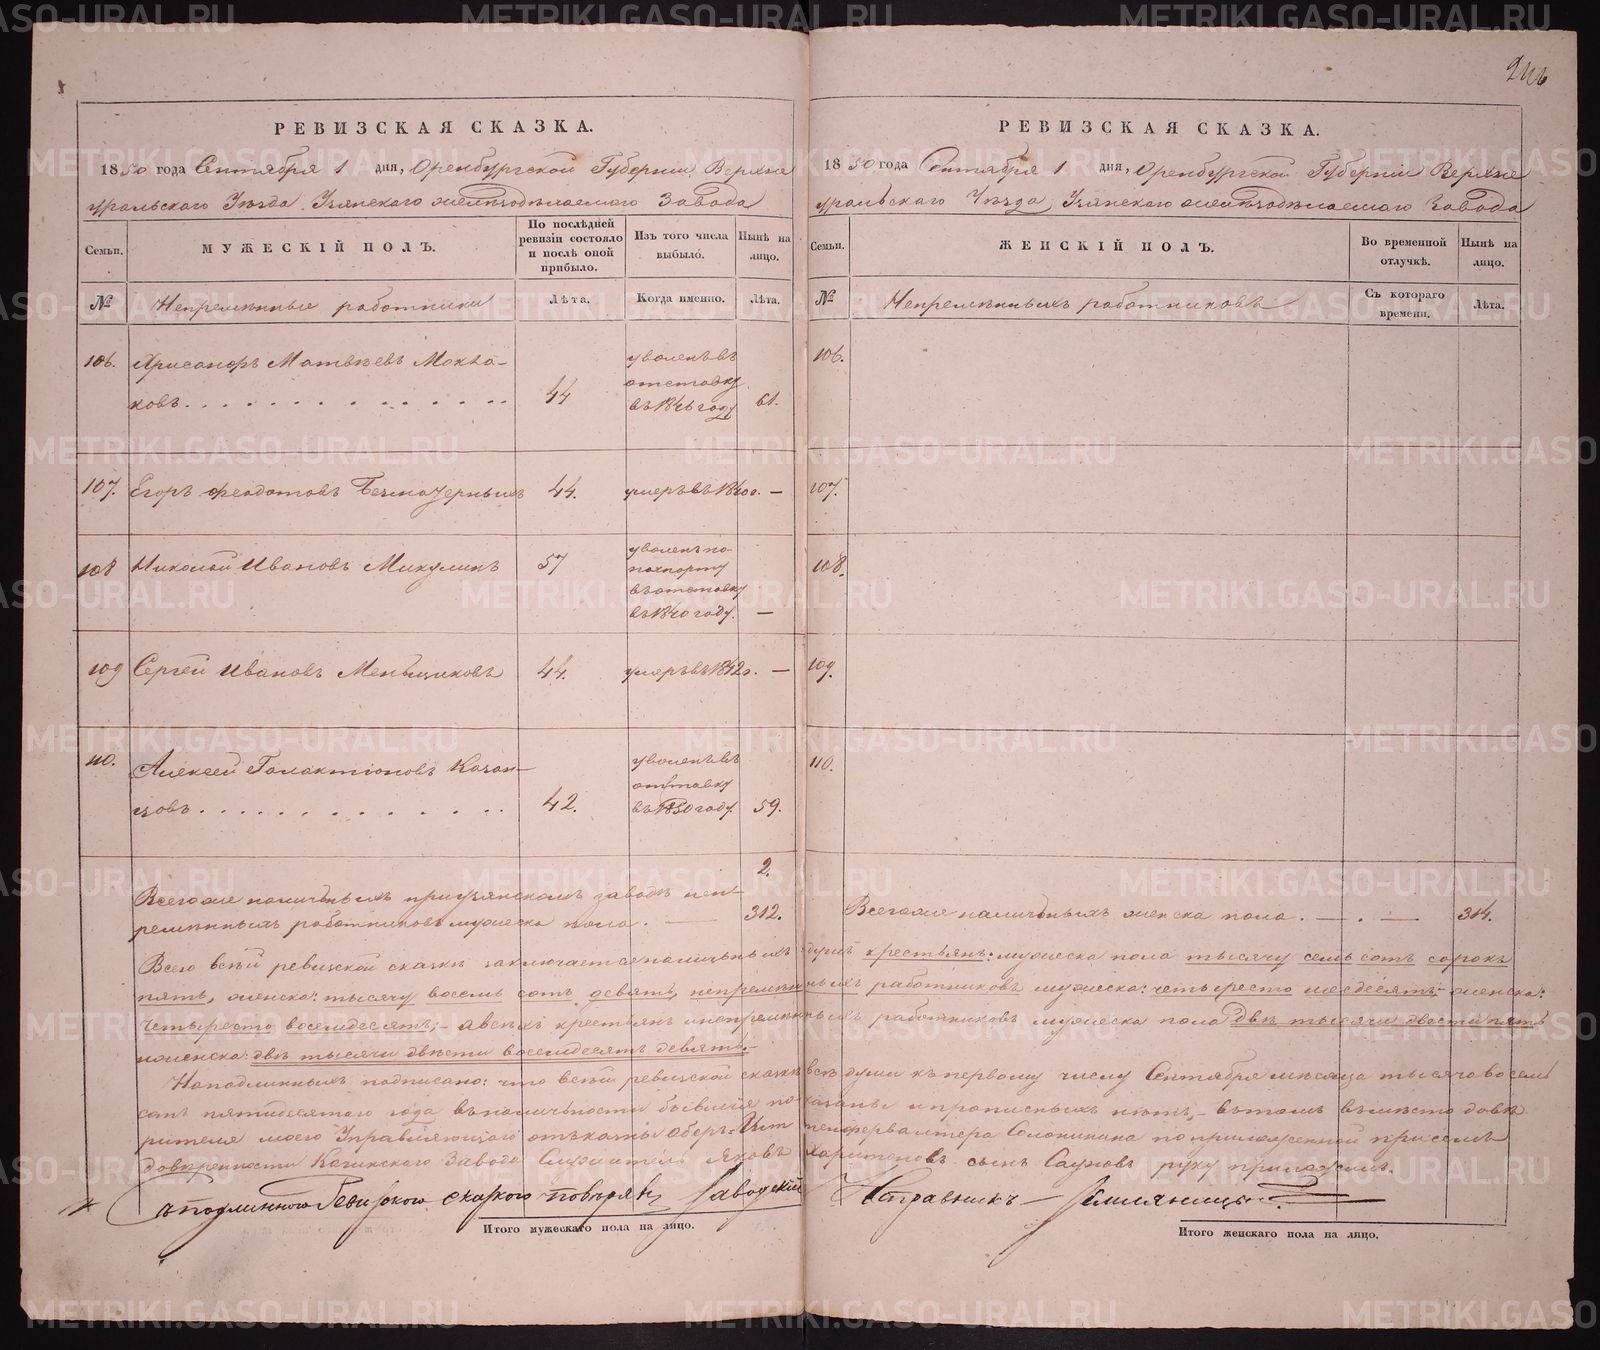 РЕВИЗСКАЯ СКАЗКА.
1850 года Сентября 1 дня, Оренбургской Губерніи, Верхне
уральскаго Уѣзда Узянскаго желѣзодѣлаемаго Завода
Семьи. МУЖЕСКІЙ ПОЛЪ. По послѣдней ревизіи состояло и послѣ оной прибыло. Изъ того числа выбыло. Нынѣ на лицо.
№ Непремѣнные работники Лѣта. Когда именно. Лѣта.
106. Хрисанфъ Матвѣевъ
ковъ 44 уволенъ въ отставку въ 1846 году 61.
107. Егоръ Федотовъ 44. умеръ въ 1840 г. —
108 Николай Ивановъ Микулинъ 57 уволенъ по паспорту въ отставку въ 1840 году. —
109 Сергей Ивановъ Меньщиковъ 44. умеръ въ 1842 г. —
110. Алексей Галактіоновъ Казан-
цовъ 42. уволенъ въ отставку въ 1850 году. 59.
2.
Всего же наличныхъ при Узянскомъ заводѣ неп-
ремѣнныхъ работниковъ мужеска пола. — 312.
РЕВИЗСКАЯ СКАЗКА.
1850 года Сентября 1 дня, Оренбургской Губерніи Верхне
уральскаго Уѣзда, Узянскаго желѣзодѣлаемаго Завода
Семьи. ЖЕНСКІЙ ПОЛЪ. Во временной отлучкѣ. Нынѣ на лицо.
№ Непремѣнныхъ работниковъ Съ котораго времени. Лѣта.
106.
107.
108.
109.
110.
Всего же наличныхъ женска пола. — . — 314.
Всего въ сей ревизской сказкѣ заключается наличныхъ душъ крестьянъ: мужеска пола тысячу семь сотъ сорокъ
пять, женска: тысячу восемь сотъ девять, непремѣнныхъ работниковъ мужеска: четыреста шесдесятъ, женска:
четыреста восемдесятъ; а всехъ крестьянъ и непремѣнныхъ работниковъ мужеска пола двѣ тысячи двести пять
женска: двѣ тысячи двѣсти восемдесятъ девять.
На подлинныхъ подписано: что въ сей ревизской сказкѣ всѣ души къ первому числу Сентября мѣсяца тысяча восемь
сотъ пятидесятаго года въ наличности бывшіе показаны и прописныхъ нѣтъ, въ томъ въ мѣсто довѣ
рителя моего Управляющаго Оберъ-Гит тенфервалтера по приложенной при семъ
довѣренности Завода Служитель Яковъ Харитоновъ сынъ руку приложилъ.
Съ подлинного Ревизского сказкою повѣрялъ Заводскій Исправникъ
Итого мужескаго пола на лицо.
Итого женскаго пола на лицо.
METRIKI.GASO-URAL.RU